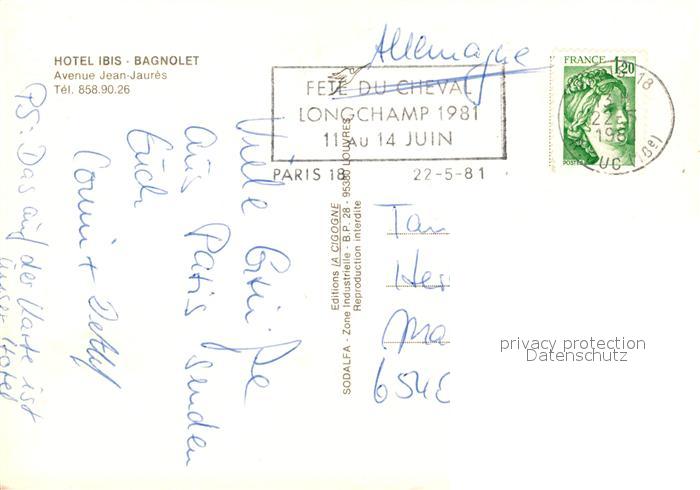 HOTEL IBIS - BAGNOLET
Avenue Jean-Jaurès
Tél. 858.90.26
Allemagne
FETE DU CHEVAL
LONGCHAMP 1981
11 AU 14 JUIN
PARIS 18 22-5-81
FRANCE 1,20
POSTES
18
22-5
198
Viele Grüße
aus Paris senden
Euch
Conni + Detlef
PS: Das auf der Karte ist
unser Hotel
Editions LA CIGOGNE
SODALFA - Zone Industrielle - B.P. 28 - 95380 LOUVRES
Reproduction interdite
Tan
Her
Ma
6548
privacy protection
Datenschutz